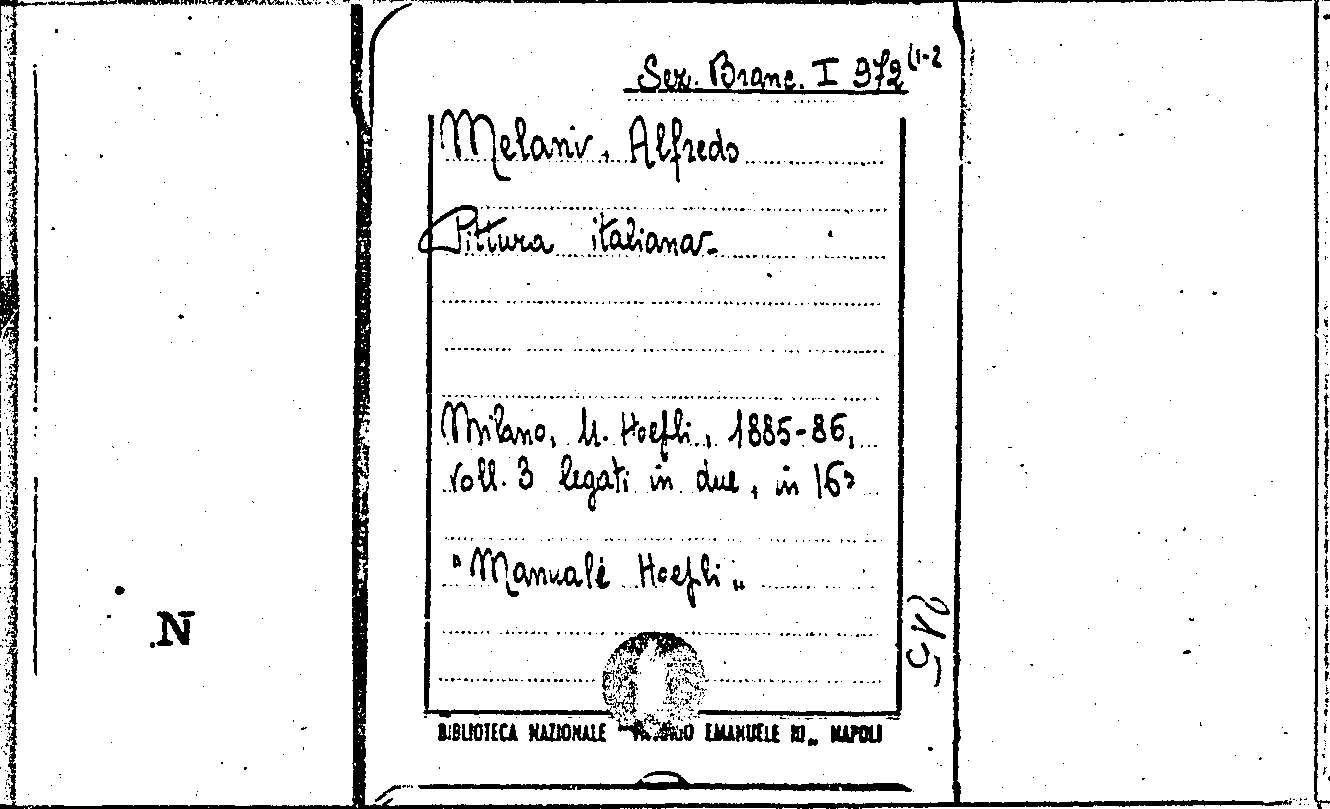 Sez. Branc. I 372 (1-2
Melani, Alfredo
Pittura italiana.
Milano, U. Hoepli, 1885-86,
voll. 3 legati in due, in 16º
"Manuali Hoepli„
BIBLIOTECA NAZIONALE EMANUELE III„ NAPOLI
N